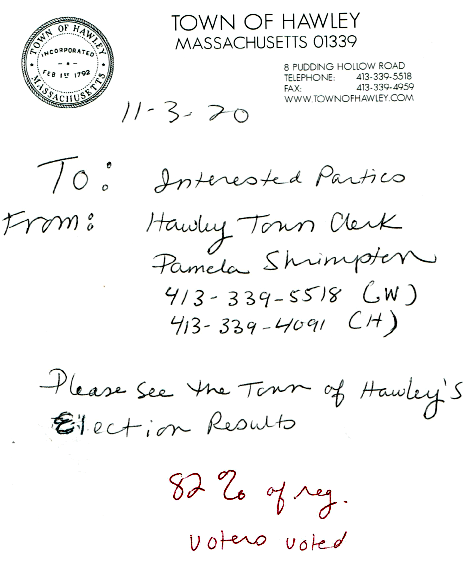 TOWN OF HAWLEY
MASSACHUSETTS
INCORPORATED
FEB 1ST 1792
TOWN OF HAWLEY
MASSACHUSETTS 01339
8 PUDDING HOLLOW ROAD
TELEPHONE: 413-339-5518
FAX: 413-339-4959
WWW.TOWNOFHAWLEY.COM
11-3-20
To: Interested Parties
From: Hawley Town Clerk
Pamela Shrimpton
413-339-5518 (W)
413-339-4091 (H)
Please see the Town of Hawley's
Election Results
82% of reg.
voters voted